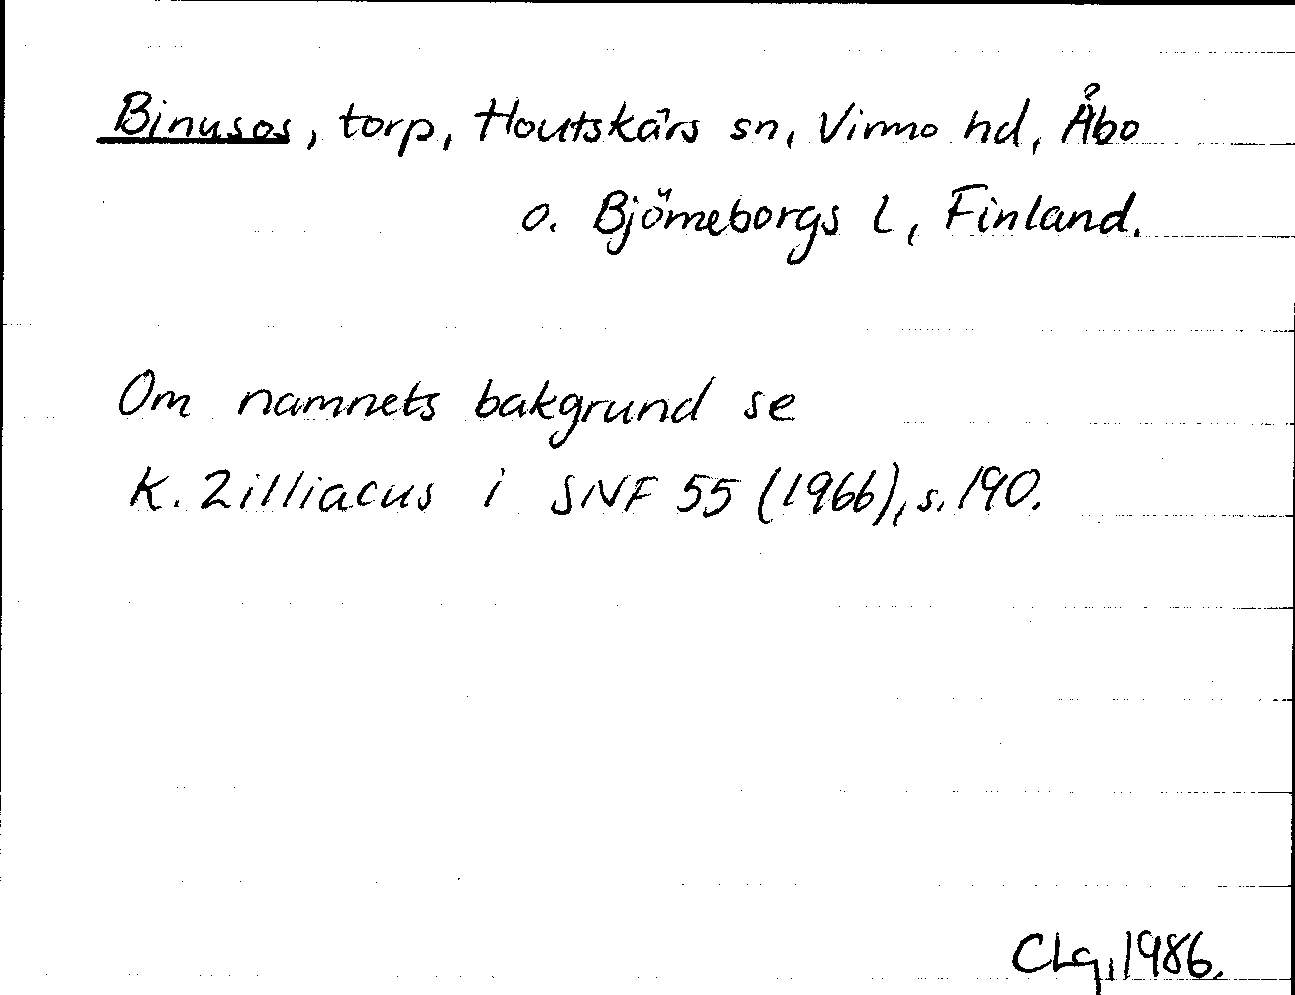 Binusos, torp, Houtskärs sn, Virmo hd, Åbo
o. Björneborgs l, Finland.
Om namnets bakgrund se
K. Zilliacus i SNF 55 (1966), s. 190.
CLq, 1986.